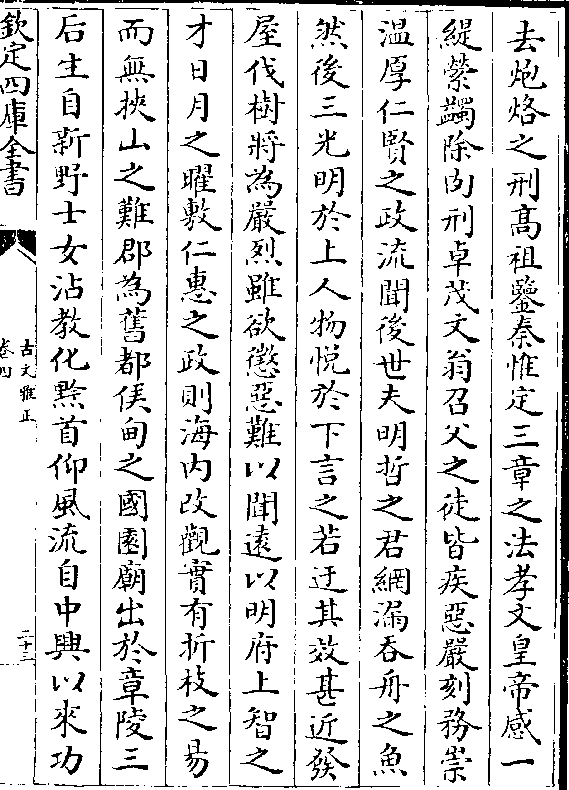 去炮烙之刑髙祖鑒秦惟定三章之法孝文皇帝感一
緹縈蠲除肉刑卓茂文翁召父之徒皆疾惡嚴刻務崇
温厚仁賢之政流聞後世夫明哲之君網漏吞舟之魚
然後三光明於上人物悦於下言之若迂其效甚近發
屋伐樹將為嚴烈雖欲懲惡難以聞遠以明府上智之
才日月之曜敷仁惠之政則海内改觀實有折枝之易
而無挾山之難郡為舊都侯甸之國園廟出於章陵三
后生自新野士女沾教化黔首仰風流自中興以來功
欽定四庫全書
古文雅正
卷四
二十三